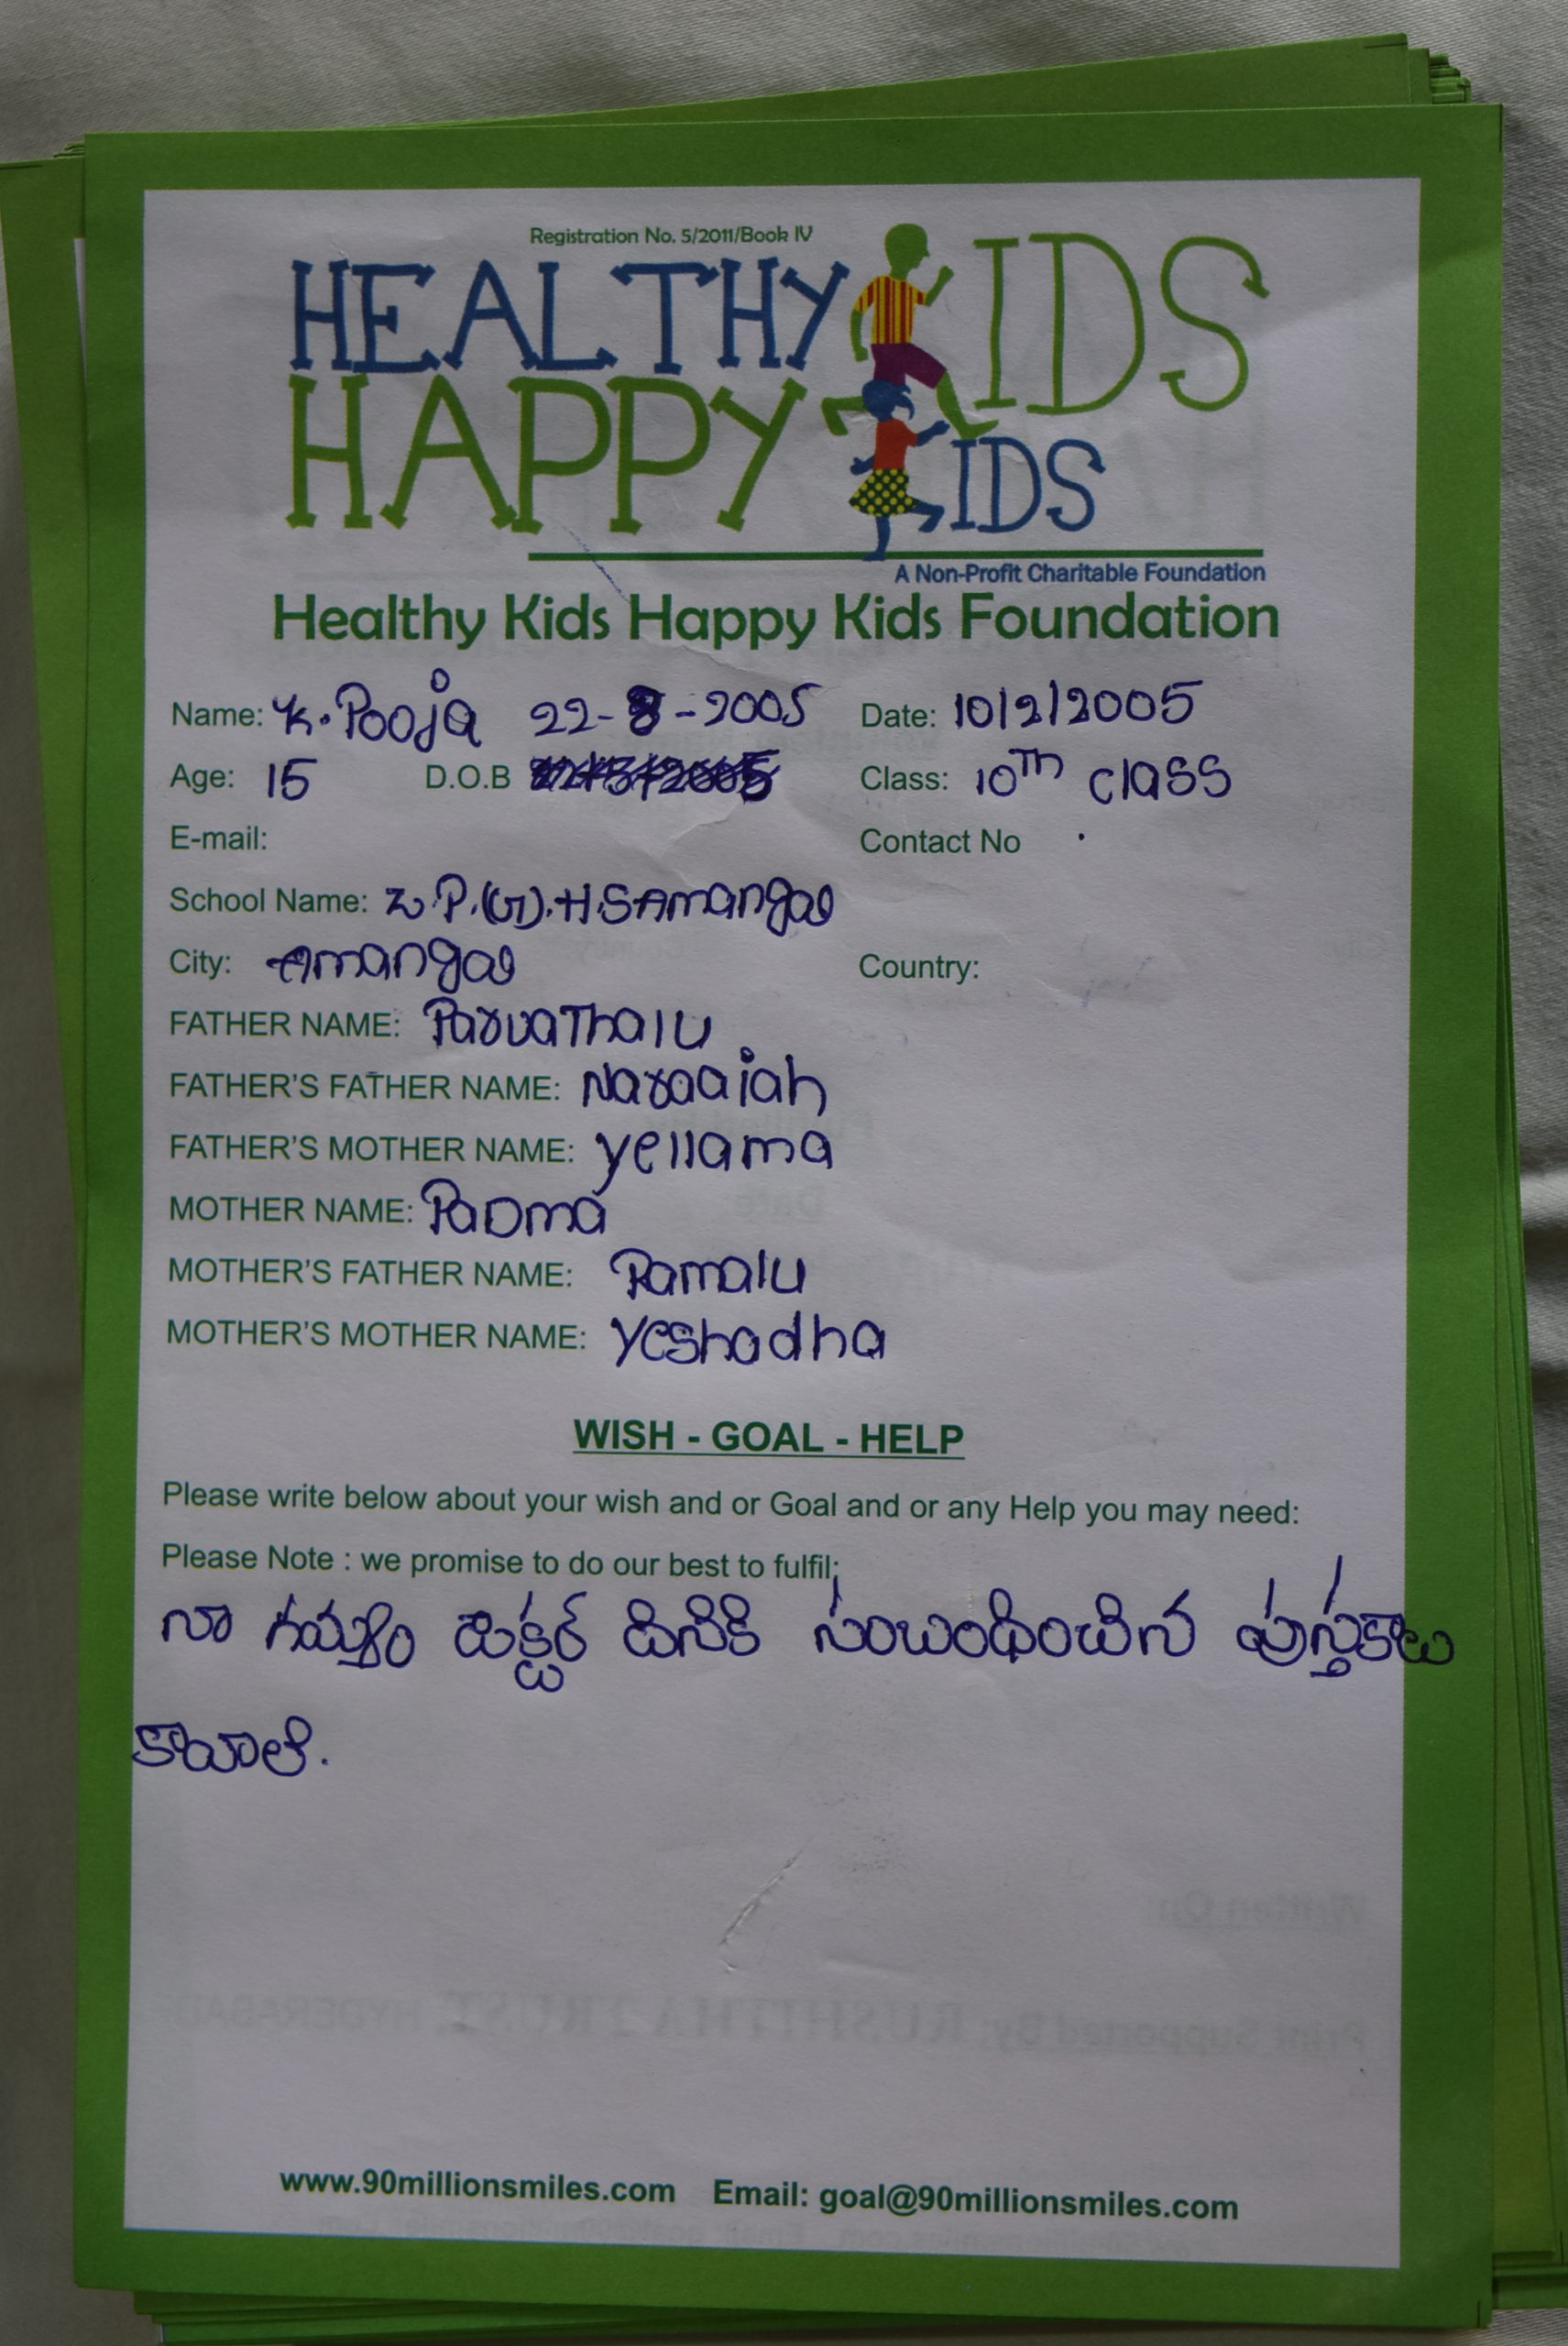 Registration No. 5/2011/Book IV
HEALTHY KIDS
HAPPY KIDS
A Non-Profit Charitable Foundation
Healthy Kids Happy Kids Foundation
Name: K. Pooja 22-8-2005 Date: 10/2/2005
Age: 15 D.O.B Class: 10Th class
E-mail: Contact No
School Name: Z.P.(G).H.S Amangal
City: Amangal Country:
FATHER NAME: ParvaThalu
FATHER'S FATHER NAME: Naraaiah
FATHER'S MOTHER NAME: yellama
MOTHER NAME: PaDma
MOTHER'S FATHER NAME: Ramalu
MOTHER'S MOTHER NAME: yeshodha
WISH - GOAL - HELP
Please write below about your wish and or Goal and or any Help you may need:
Please Note : we promise to do our best to fulfil;
నా గమ్యం డాక్టర్ దినికి సంబంధించిన పుస్తకాలు
కావాలి.
www.90millionsmiles.com Email: goal@90millionsmiles.com